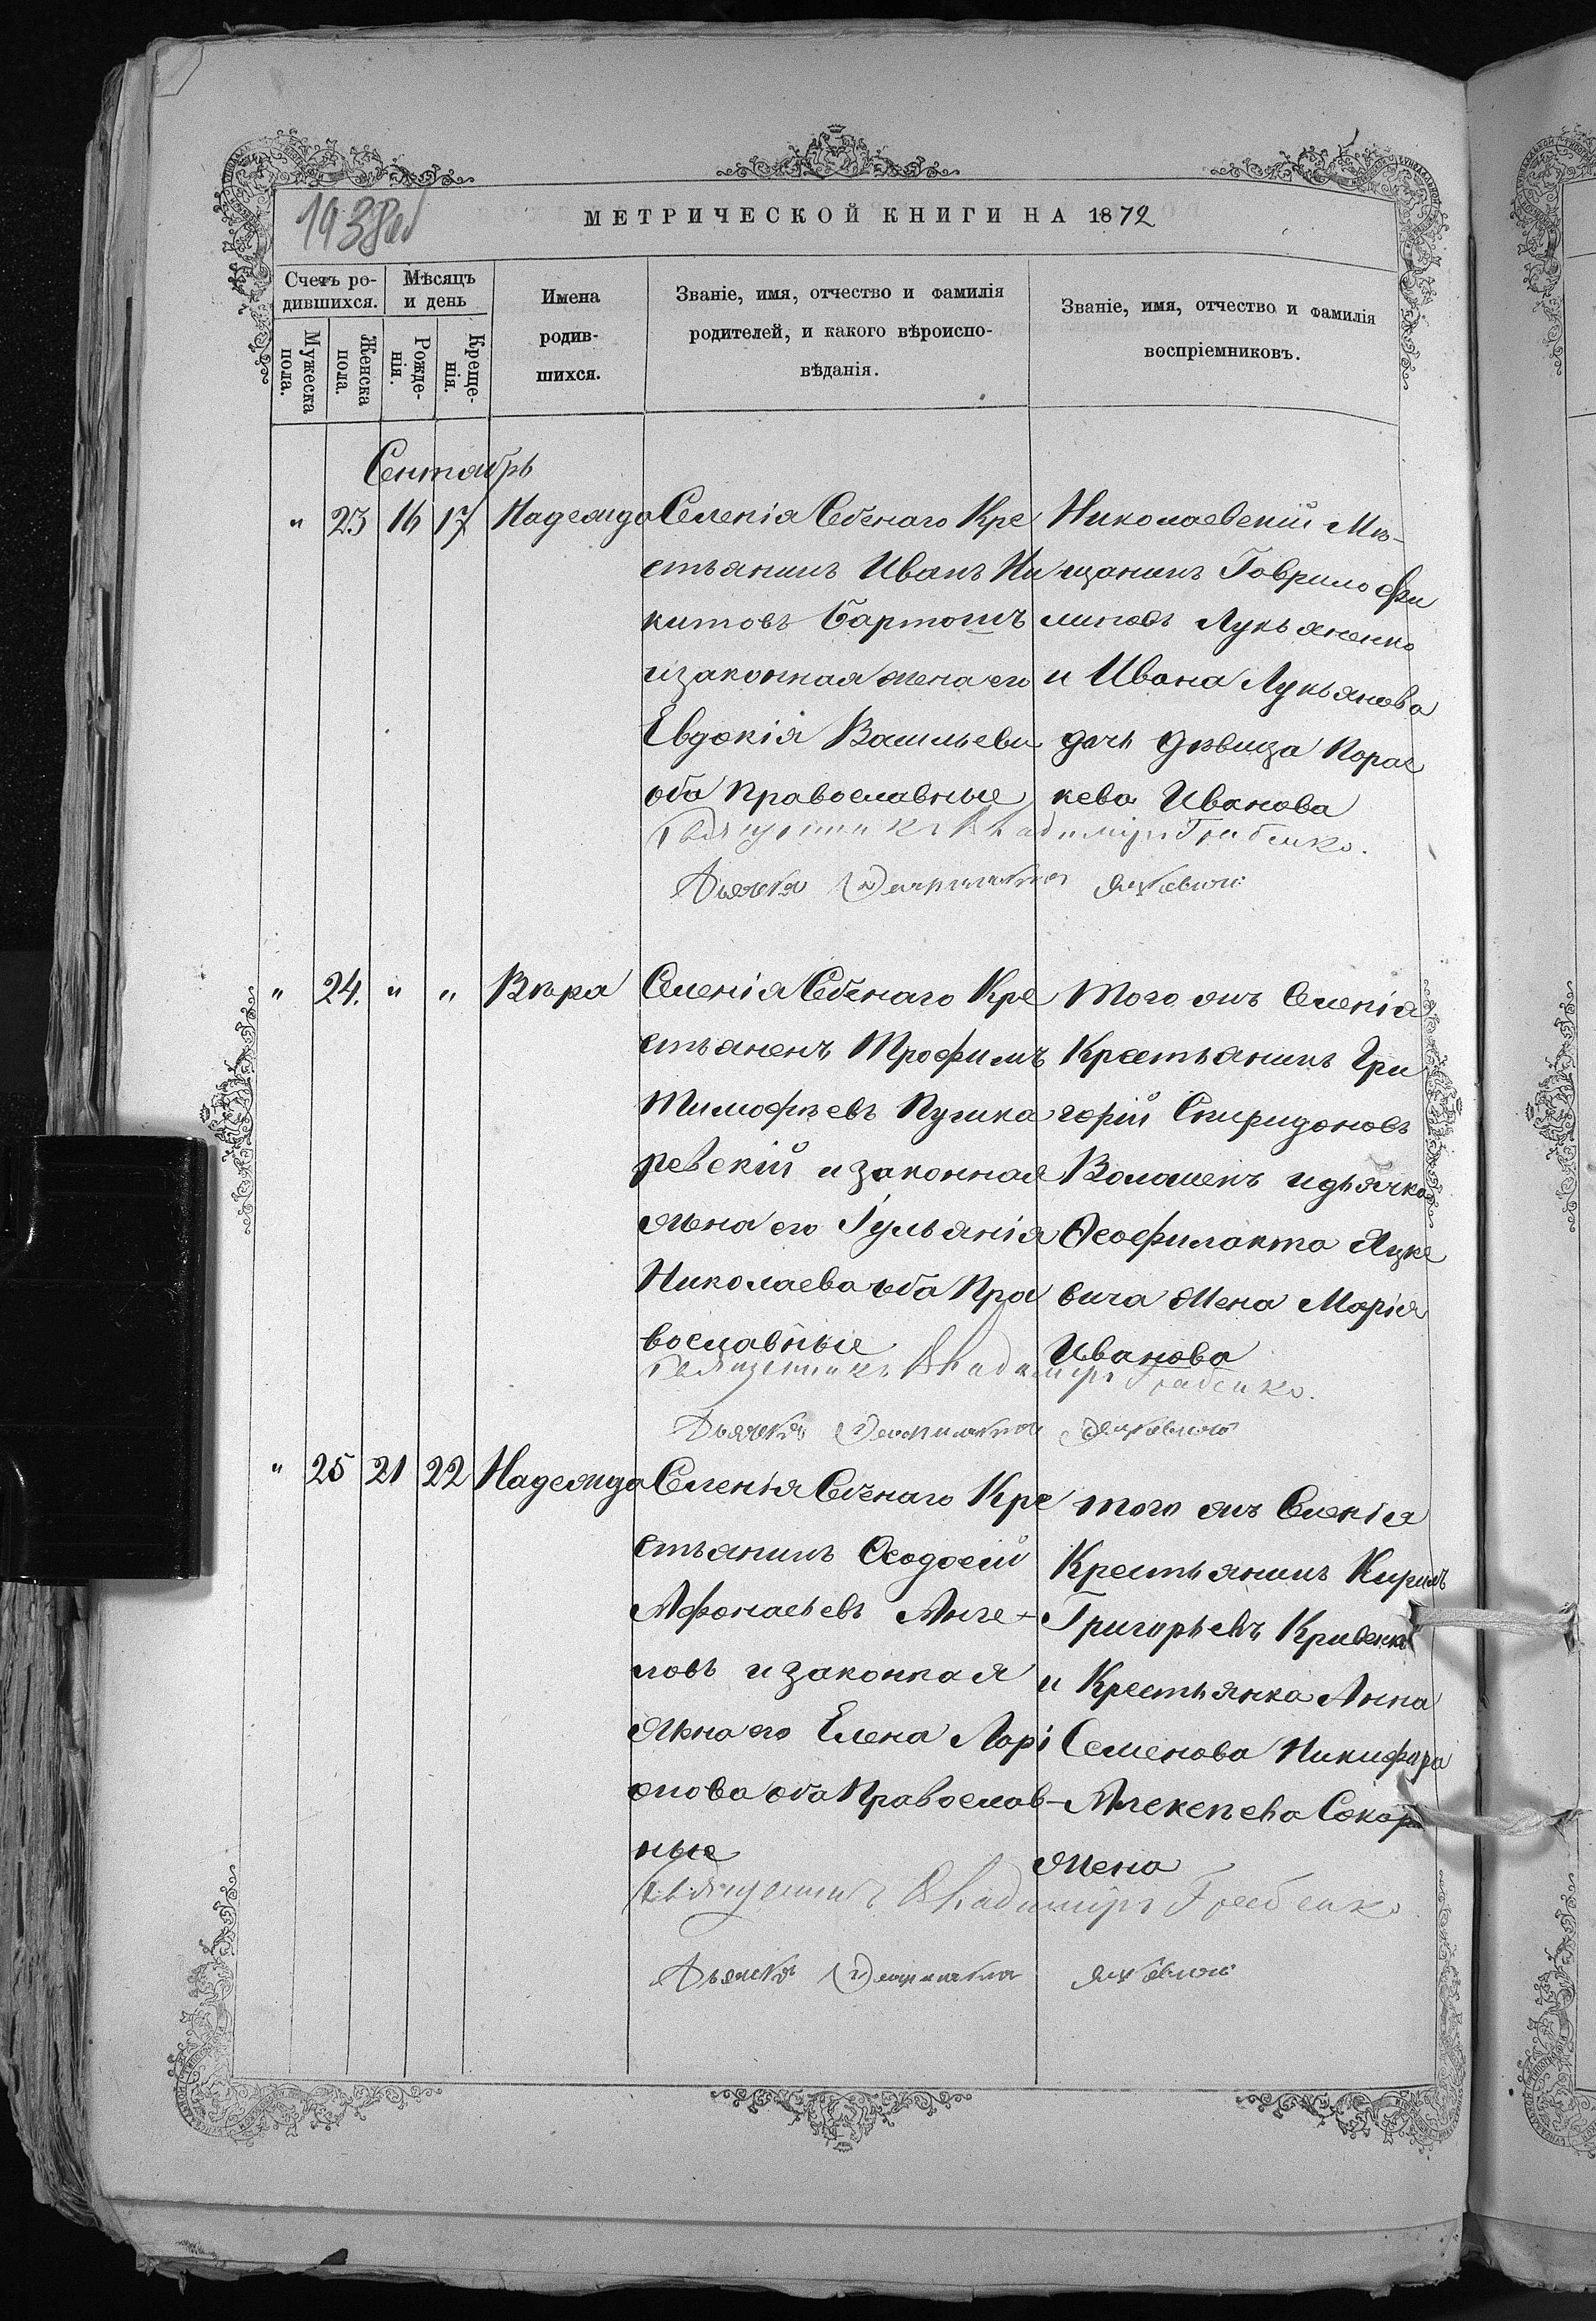 1938об
МЕТРИЧЕСКОЙ КНИГИ НА 1872
Счетъ ро-
дившихся.
Мѣсяцъ
и день
Мужеска
пола.
Женска
пола.
Рожде-
нія.
Креще-
нія.
Имена
родив-
шихся.
Званіе, имя, отчество и фамилія
родителей, и какого вѣроиспо-
вѣданія.
Званіе, имя, отчество и фамилія
воспріемниковъ.
Сентябрь
" 23 16 17 Надежда
Селенія Свѣчнаго Кре
стьянинъ Иванъ Ни
китовъ Бартошъ
и законная жена его
Евдокія Васильева
оба православные
Николаевскій Мѣ-
щанинъ Гаврило Фи
липовъ Лукьяненко
и Ивана Лукьянова
дочь дѣвица Парас
кева Иванова
Священникъ Владиміръ Грабенко.
Дьячекъ Ѳеофилактъ Яцкевичъ
" 24. " " Вѣра
Селенія Свѣчнаго Кре
стьянинъ Трофимъ
Тимофѣевъ Пушка
ревскій и законная
жена его Іульянія
Николаева оба Пра
вославные
Того жъ Селенія
Крестьянинъ Гри
горій Спиридоновъ
Волошенъ и дьячка
Ѳеофилакта Яцке
вича жена Марія
Иванова
Священникъ Владиміръ Грабенко.
Дьячекъ Ѳеофилактъ Яцкевичъ
" 25 21 22 Надежда
Селенія Свѣчнаго Кре
стьянинъ Ѳеодосій
Афонасьевъ Анге-
ловъ и законная
жена его Елена Ларі
онова оба Православ-
ные
того жъ Селенія
Крестьянинъ Кирилъ
Григорьевъ Кривенко
и Крестьянка Анна
Семенова Никифора
Алексѣева
жена
Священникъ Владиміръ Грабенко
Дьячекъ Ѳеофилактъ Яцкевичъ